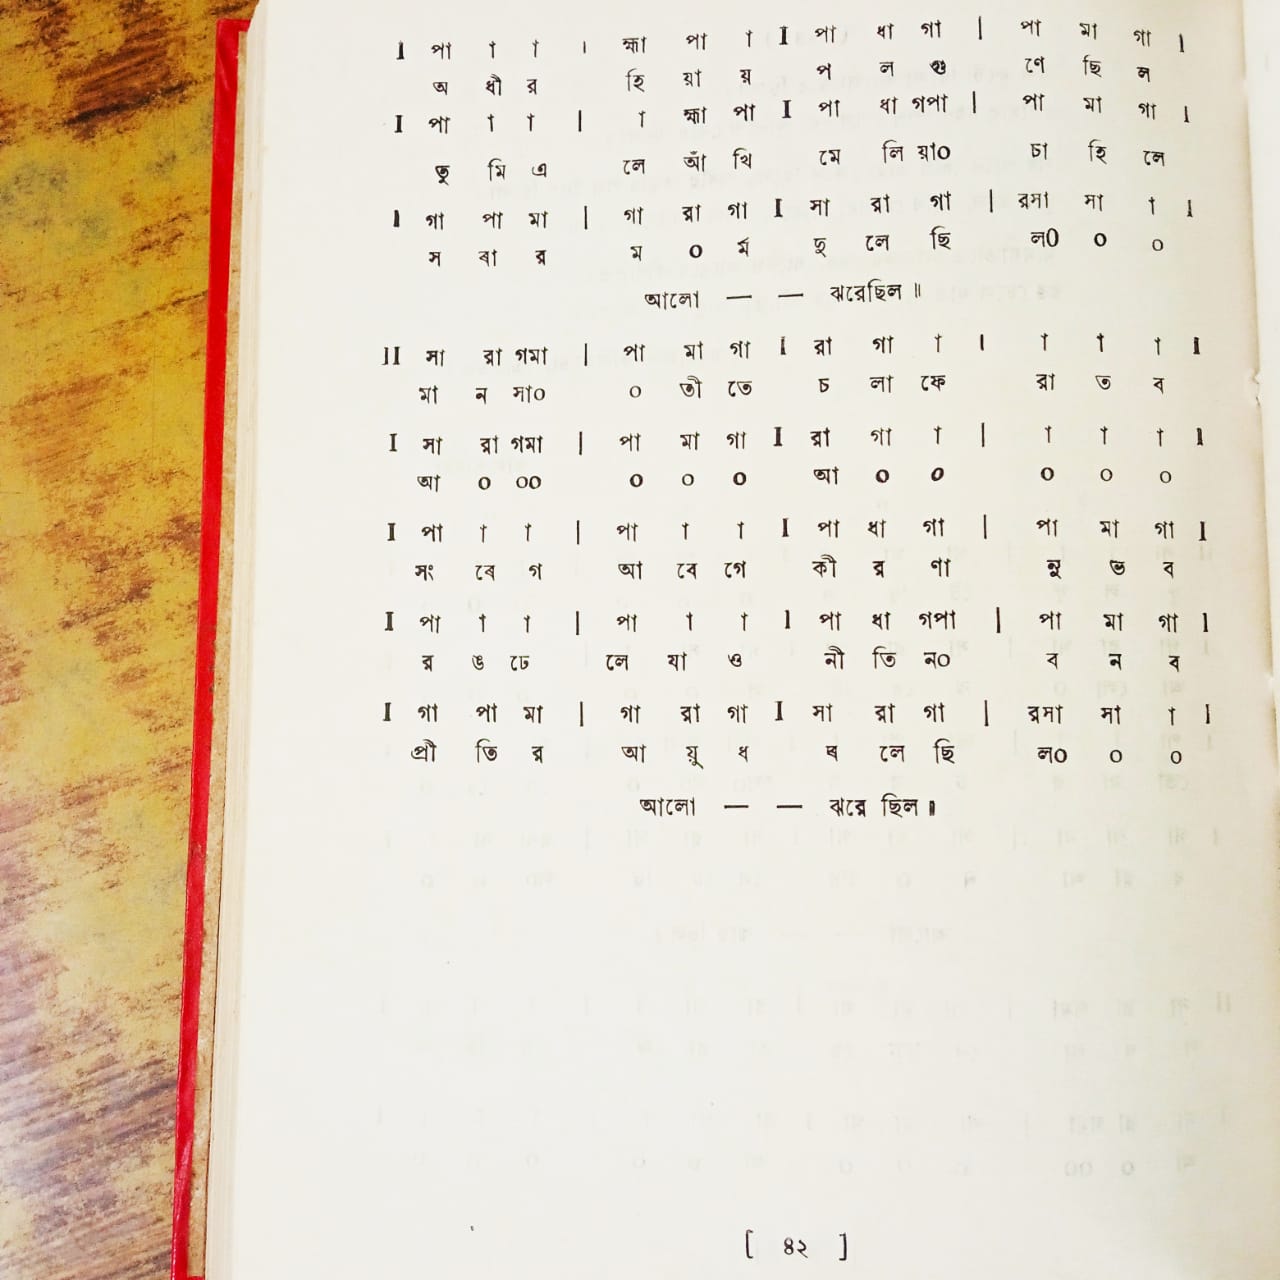 I পা া া । হ্মা পা া I পা ধা গা | পা মা গা I
অ ধী র হি য়া য় প ল গু ণে ছি ল
I পা া া | া হ্মা পা I পা ধা গপা | পা মা গা I
তু মি এ লে আঁ খি মে লি য়া০ চা হি লে
I গা পা মা | গা রা গা I সা রা গা | রসা সা া I
স বা র ম ০ র্ম দু লে ছি ল০ ০ ০
আলো — — ঝরেছিল ॥
II সা রা গমা | পা মা গা I রা গা া । া া া I
মা ন সা০ ০ তী তে চ লা ফে রা ত ব
I সা রা গমা | পা মা গা I রা গা া | া া া I
আ ০ ০০ ০ ০ ০ আ ০ ০ ০ ০ ০
I পা া া | পা া া I পা ধা গা | পা মা গা I
সং বে গ আ বে গে কী র ণা নু ভ ব
I পা া া | পা া া I পা ধা গপা | পা মা গা I
র ঙ ঢে লে যা ও নী তি ন০ ব ন ব
I গা পা মা | গা রা গা I সা রা গা | রসা সা া I
প্রী তি র আ য়ু ধ ব লে ছি ল০ ০ ০
আলো — — ঝরে ছিল ॥
[ ৪২ ]